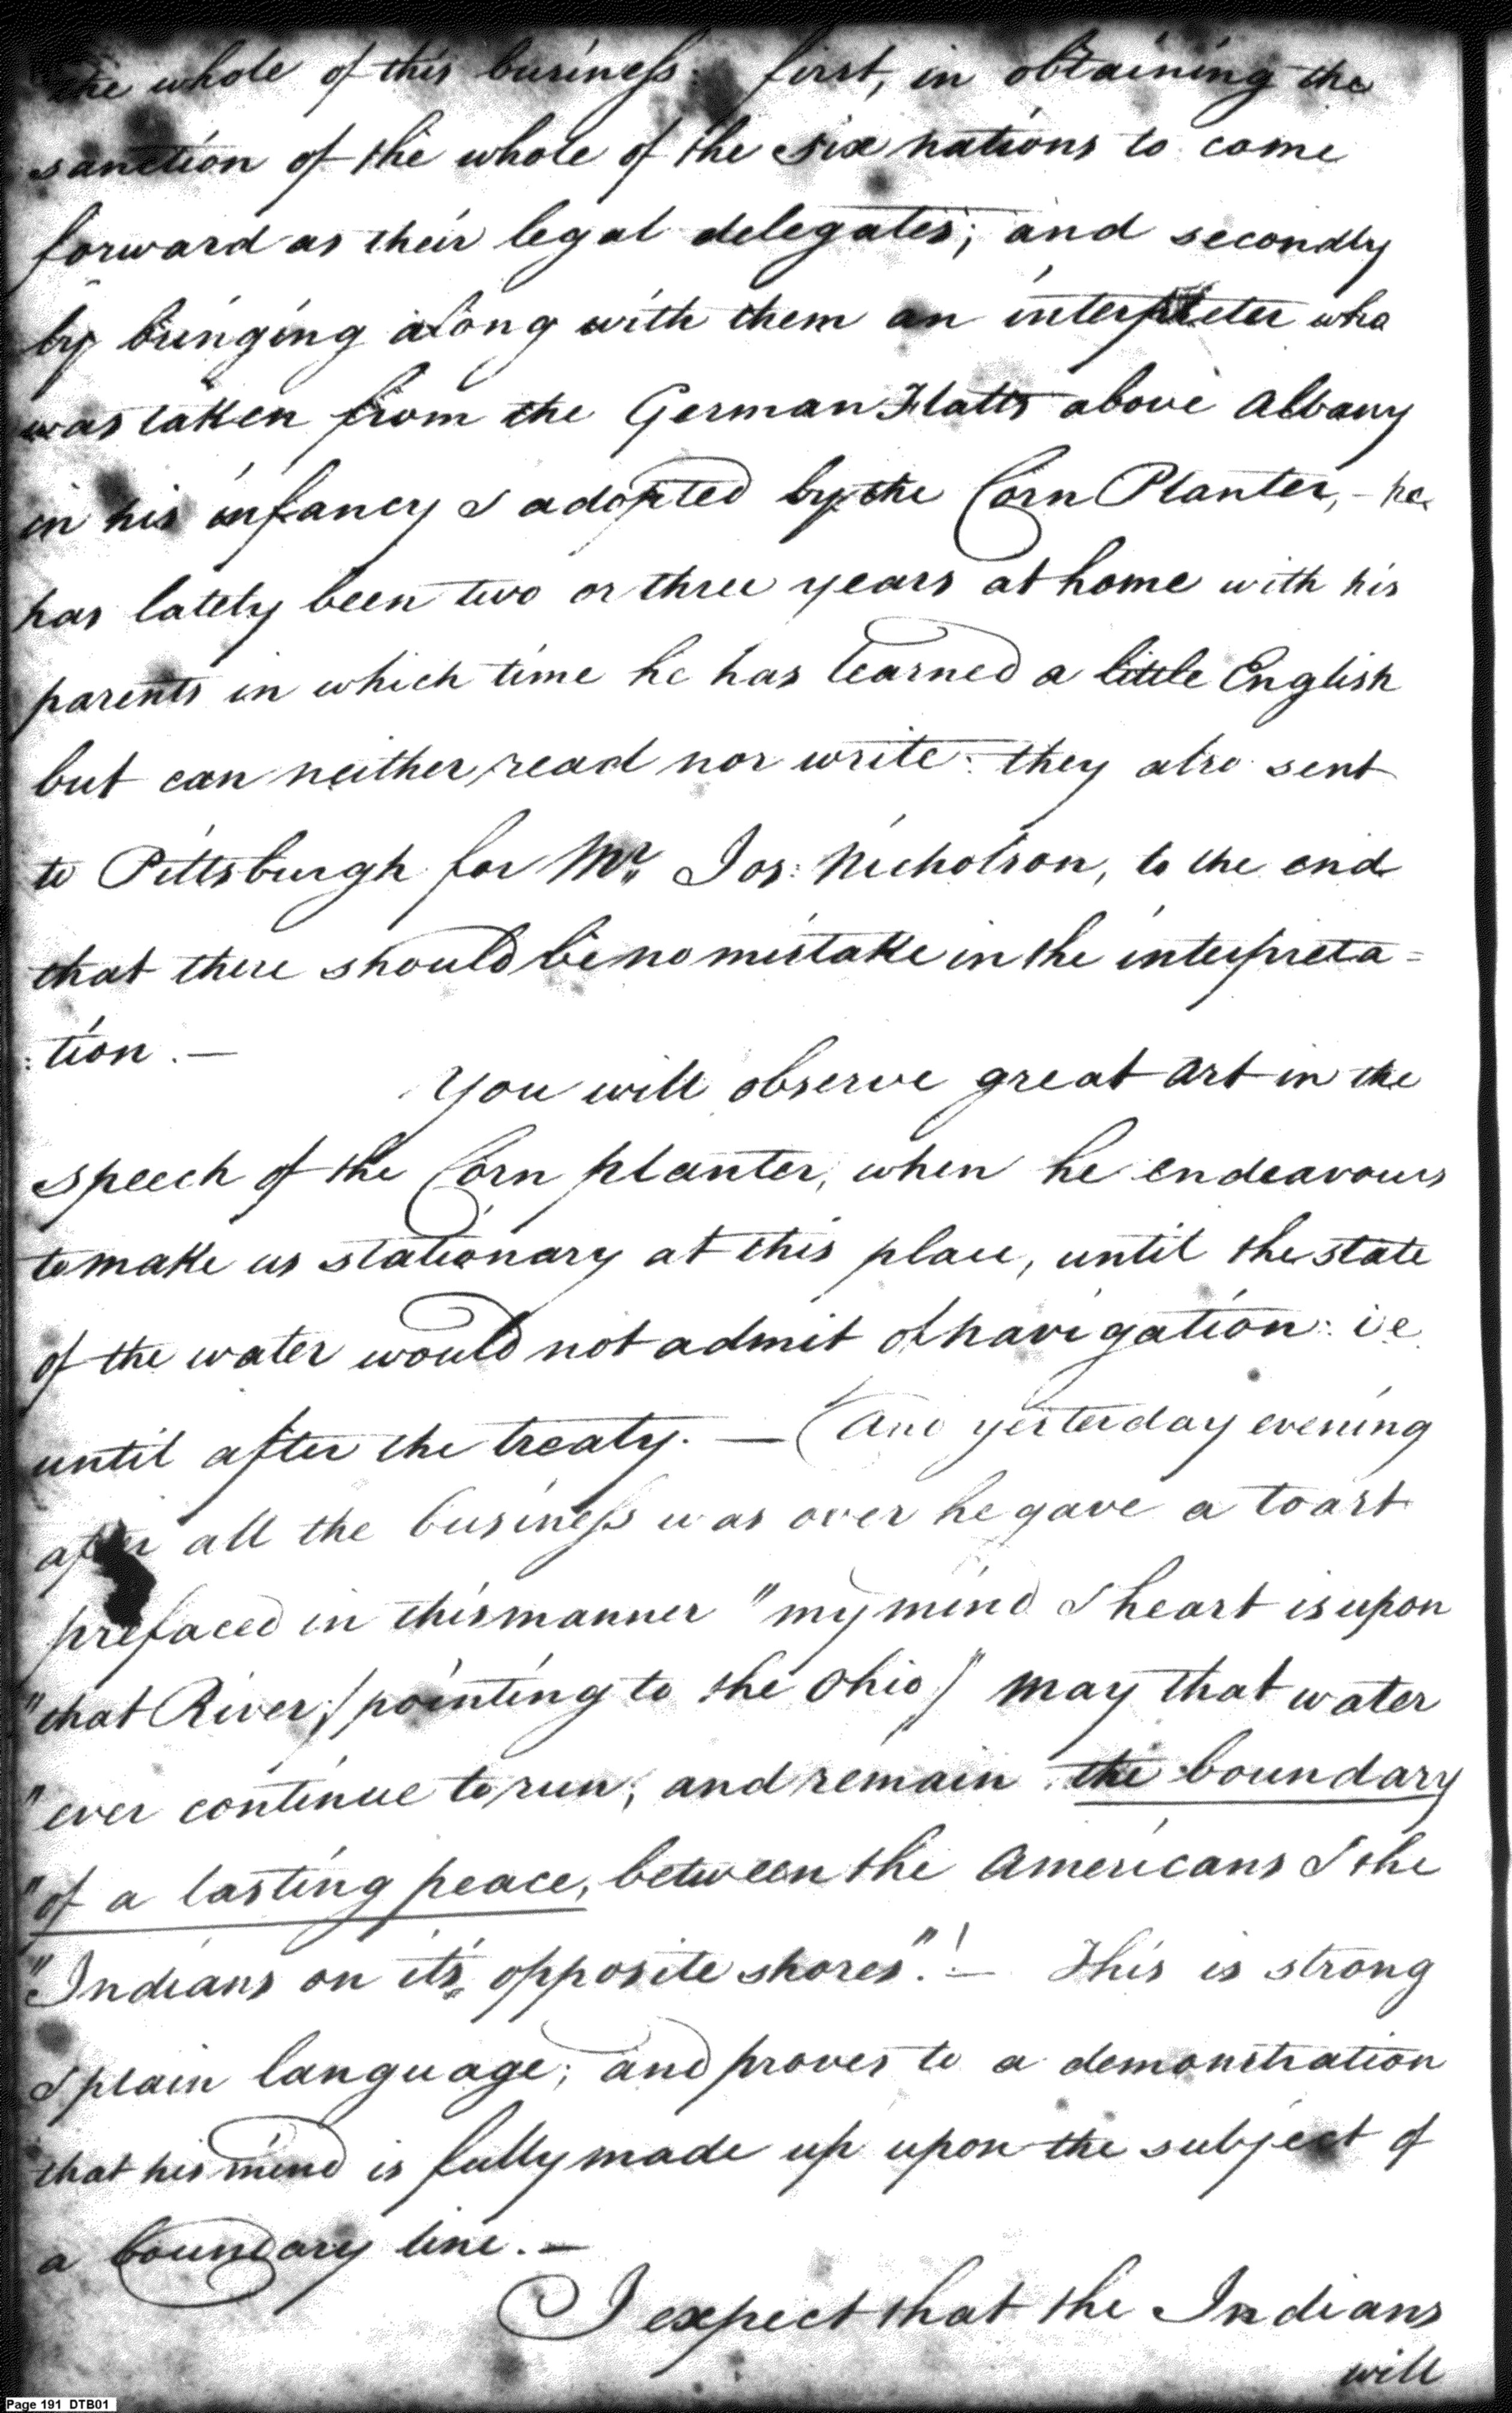 the whole of this business: first, in obtaining the
sanction of the whole of the six nations to come
forward as their legal delegates; and secondly
by bringing along with them an interpreter who
was taken from the German Flatts above Albany
in his infancy & adopted by the Corn Planter, – he
has lately been two or three years at home with his
parents in which time he has learned a little English
but can neither read nor write: they also sent
to Pittsburgh for Mr. Jos: Nicholson, to the end
that there should be no mistake in the interpreta=
:tion. —
You will observe great art in the
speech of the Corn planter, when he endeavours
to make us stationary at this place, until the state
of the water would not admit of navigation: i e
until after the treaty. — And yesterday evening
after all the business was over he gave a toast
prefaced in this manner "my mind & heart is upon
"that River, /pointing to the Ohio/ may that water
"ever continue to run, and remain the boundary
"of a lasting peace, between the Americans & the
"Indians on it's opposite shores"! — This is strong
& plain language; and proves to a demonstration
that his mind is fully made up upon the subject of
a boundary line. —
I expect that the Indians
will
Page 191 DTB01